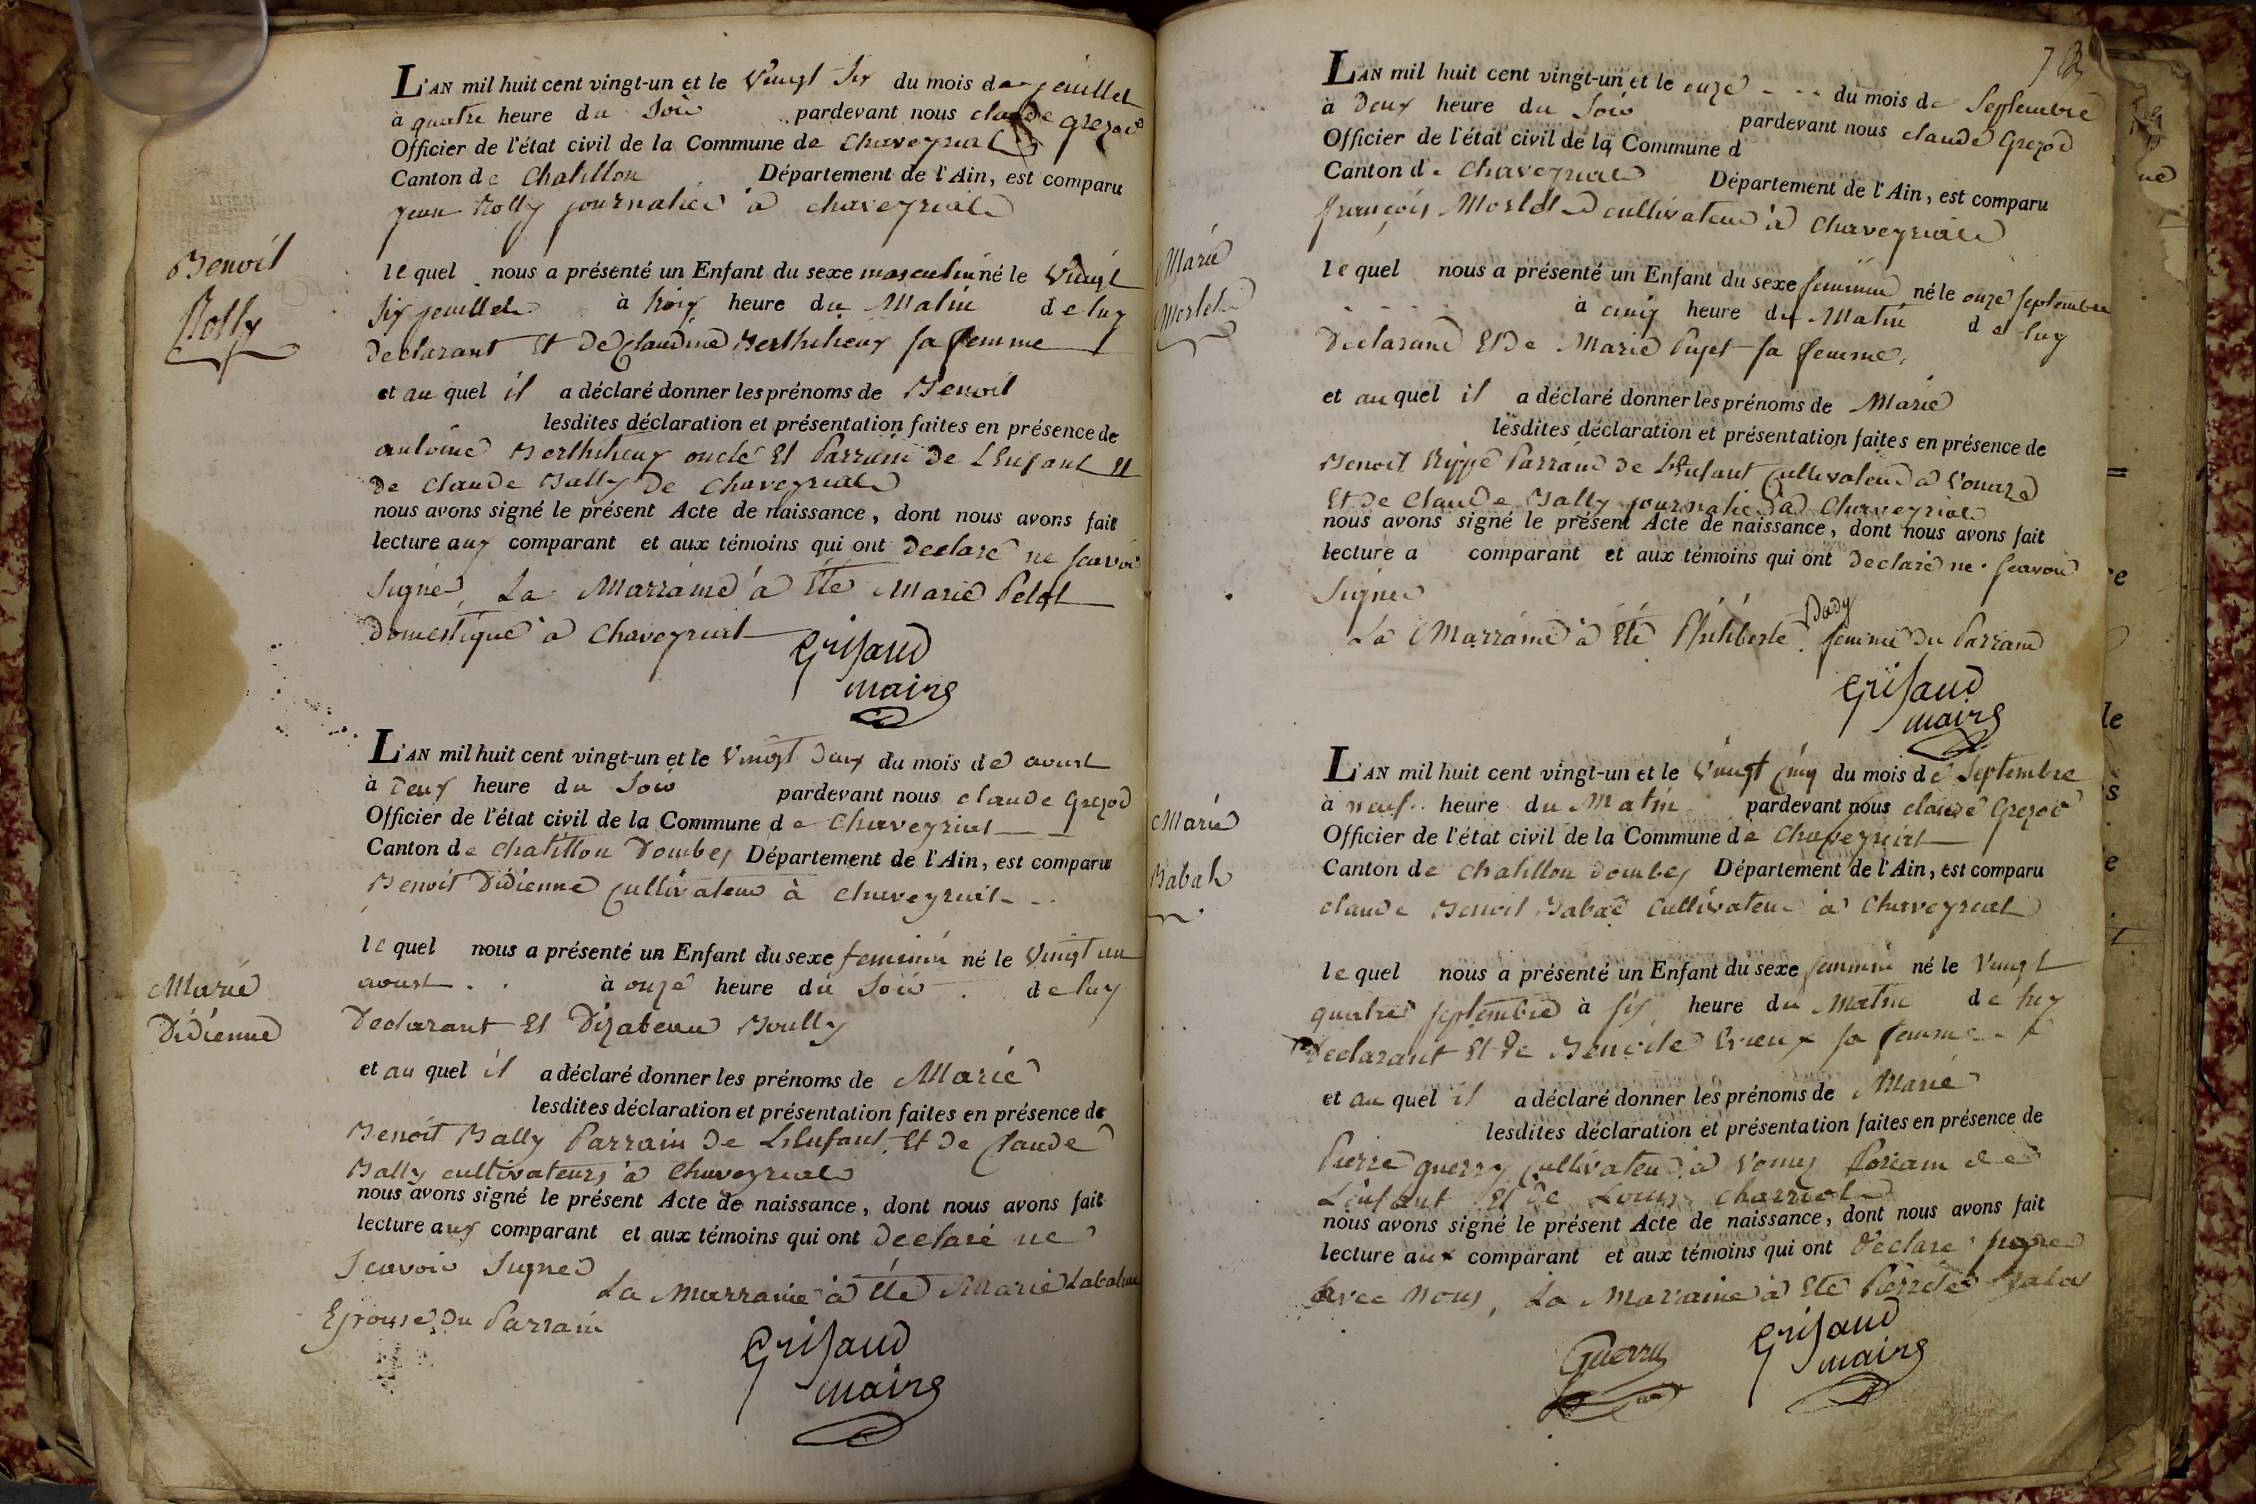 L'AN mil huit cent vingt-un et le vingt six du mois de jeuillet
à quatre heure du soir pardevant nous claude
Officier de l'état civil de la Commune de Chaveyriat
Canton de Chatillon Département de l'Ain, est comparu
jean Rolly journalier à chaveyriat
Benoit
Rolly
le quel nous a présenté un Enfant du sexe masculin né le vingt
six jeuillet à troix heure du Matin de luy
declarant Et De Claudine Berthilieux sa femme
et au quel il a déclaré donner les prénoms de Benoit
lesdites déclaration et présentation faites en présence de
antoine Berthilieux oncle Et Parrain de L'Enfant Et
de Claude Bally de Chaveyriat
nous avons signé le présent Acte de naissance, dont nous avons fait
lecture aux comparant et aux témoins qui ont declaré ne scavoir
signer, La Marraine à Eté Marie Pelot
Domestique à Chaveyriat
Grisaud
maire
L'AN mil huit cent vingt-un et le vingt deux du mois de aoust
à Deux heure du Soir pardevant nous claude
Officier de l'état civil de la Commune de Chaveyriat
Canton de Chatillon Dombes Département de l'Ain, est comparu
Benoit Didienne Cultivateur à Chaveyriat
Marie
Didienne
le quel nous a présenté un Enfant du sexe feminin né le vingt un
aoust à onze heure du Soir de luy
Declarant Et Dizabeau
et au quel il a déclaré donner les prénoms de Marie
lesdites déclaration et présentation faites en présence de
Benoit Bally Parrain de L'Enfant Et de Claude
Bally cultivateurs à Chaveyriat
nous avons signé le présent Acte de naissance, dont nous avons fait
lecture aux comparant et aux témoins qui ont declaré ne
scavoir signer
La Marraine à Eté Marie
Epouse Du Parrain
Grisaud
maire
L'AN mil huit cent vingt-un et le onze du mois de Septembre
à Deux heure du Soir pardevant nous claude
Officier de l'état civil de la Commune d
Canton de Chaveyriat Département de l'Ain, est comparu
françois Morlet cultivateur à Chaveyriat
Marie
Morlet
le quel nous a présenté un Enfant du sexe feminin né le onze septembre
à cinq heure du Matin de luy
Declarant Et De Marie Pujet sa femme,
et au quel il a déclaré donner les prénoms de Marie
lesdites déclaration et présentation faites en présence de
Benoit Rippe Parrain de L'Enfant Cultivateur à
Et De Claude Bally journalier à Chaveyriat
nous avons signé le présent Acte de naissance, dont nous avons fait
lecture a comparant et aux témoins qui ont declaré ne scavoir
signer
La Marraine à Eté Philiberte femme Du Parrain
Grisaud
maire
L'AN mil huit cent vingt-un et le vingt cinq du mois de Septembre
à neuf heure du Matin pardevant nous claude
Officier de l'état civil de la Commune de Chaveyriat
Canton de Chatillon Dombes Département de l'Ain, est comparu
claude Benoit Cultivateur à Chaveyriat
Marie
le quel nous a présenté un Enfant du sexe feminin né le vingt
quatre septembre à six heure du Matin de luy
Declarant Et de Benoite sa femme
et au quel il a déclaré donner les prénoms de Marie
lesdites déclaration et présentation faites en présence de
Pierre guerry Cultivateur à de
L'enfant Et de Louis
nous avons signé le présent Acte de naissance, dont nous avons fait
lecture aux comparant et aux témoins qui ont declaré signer
avec nous, La Marraine à Eté
Guerry
Grisaud
maire